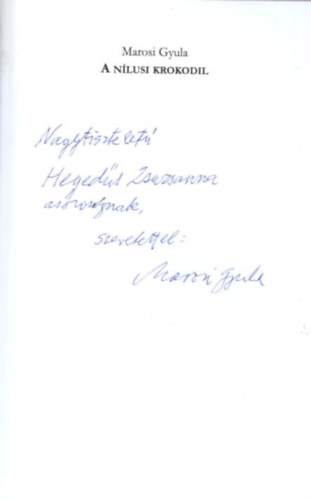 Marosi Gyula
A NÍLUSI KROKODIL
Nagytiszteletű
Hegedűs Zsuzsanna
szeretettel:
Marosi Gyula